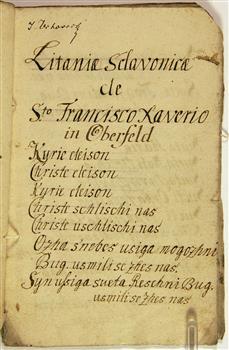 Litaniæ Sclavonicæ
de
Sto Francisco Xaverio
in Oberfeld
Kyrie eleison
Christe eleison
Kyrie eleison
Christe schlischi nas
Christe uschlischi nas
Ozha s nebes usiga mogozhni
Bug. usmili se zhes nas.
Syn usiga sveta Reschni Bug.
usmili se zhes nas